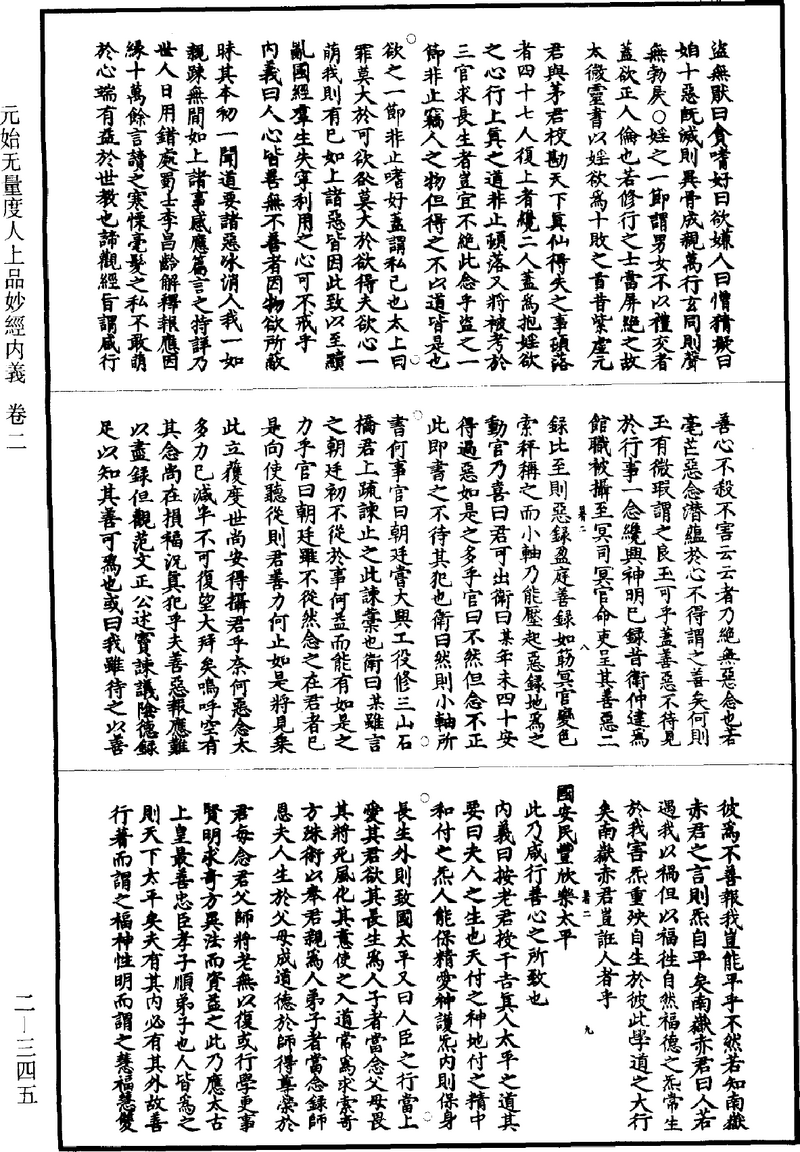 盜無厭曰貪嗜好曰欲嫌人曰憎猜擬曰
妬十惡既滅則異骨成親萬行玄同則聲
無勃戾○婬之一節謂男女不以禮交者
蓋欲正人倫也若修行之士當屏絕之故
太微靈書以婬欲爲十敗之首昔紫虛元
君與茅君校勘天下眞仙得失之事頓落
者四十七人復上者纔二人蓋爲抱婬欲
之心行上眞之道非止頓落又將被考於
三官求長生者豈宜不絕此念乎盜之一
節非止竊人之物但得之不以道皆是也
欲之一節非止嗜好蓋謂私己也太上曰
罪莫大於可欲欲莫大於欲得夫欲心一
萌我則有已如上諸惡皆因此致以至黷
亂國經羣生失寧利用之心可不戒乎
內義曰人心皆善無不善者因物欲所蔽
昧其本初一聞道要諸惡冰消人我一如
親踈無間如上諸事感應篇言之特詳乃
世人日用錯處蜀士李昌齡解釋報應因
緣十萬餘言讀之寒慄毫髮之私不敢萌
於心端有益於世教也諦觀經旨謂咸行
善心不殺不害云云者乃絕無惡念也若
毫芒惡念潛蘊於心不得謂之善矣何則
玉有微瑕謂之良玉可乎蓋善惡不待見
於行事一念纔興神明已錄昔衛仲達爲
館職被攝至冥司冥官命吏呈其善惡二
錄比至則惡錄盈庭善錄如筯冥官變色
索秤稱之而小軸乃能壓起惡錄地爲之
動官乃喜曰君可出衛曰某年未四十安
得過惡如是之多乎官曰不然但念不正
此即書之不待其犯也衛曰然則小軸所
書何事官曰朝廷嘗大興工役修三山石
橋君上疏諫止之此諫藁也衛曰某雖言
之朝廷初不從於事何益而能有如是之
力乎官曰朝廷雖不從然念之在君者已
是向使聽從則君善力何止如是將見乘
此立獲度世尚安得攝君乎奈何惡念太
多力已減半不可復望大拜矣嗚呼空有
其念尚在損福況眞犯乎夫善惡報應難
以盡錄但觀范文正公述竇諫議陰德錄
足以知其善可爲也或曰我雖待之以善
彼爲不善報我豈能平乎不然若知南嶽
赤君之言則炁自平矣南嶽赤君曰人若
遇我以禍但以福往自然福德之炁常生
於我害炁重殃自生於彼此學道之大行
矣南嶽赤君豈誑人者乎
國安民豐欣樂太平
此乃咸行善心之所致也
內義曰按老君授干吉眞人太平之道其
要曰夫人之生也天付之神地付之精中
和付之炁人能保精愛神護炁內則保身
長生外則致國太平又曰人臣之行當上
愛其君欲其長生爲人子者當念父母畏
其將死風化其意使之入道常爲求索奇
方殊術以奉君親爲人弟子者當念錄師
恩夫人生於父母成道德於師得尊榮於
君每念君父師將老無以復或行學更事
賢明求奇方異法而資益之此乃應太古
上皇最善忠臣孝子順弟子也人皆爲之
則天下太平矣夫有其內必有其外故善
行著而謂之福神性明而謂之慧福慧雙
元始无量度人上品妙經內義 卷二
二—三四五